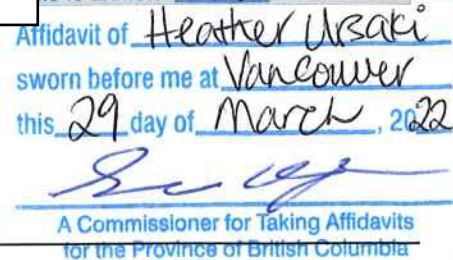 Affidavit of Heather Ursaki
sworn before me at Vancouver
this 29 day of March, 2022
A Commissioner for Taking Affidavits
for the Province of British Columbia